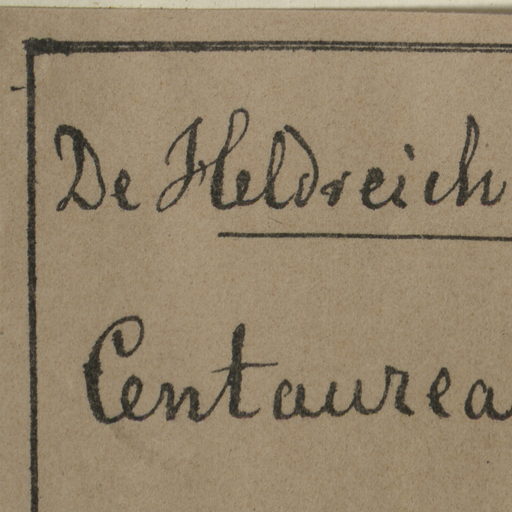 De Heldreich
Centaurea